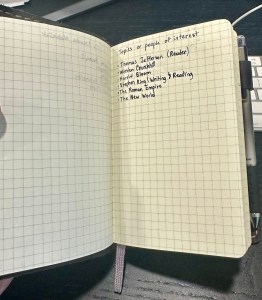 Topics or people of interest
· Thomas Jefferson (Reader)
· Winston Churchill
· Harold Bloom
· Stephen King / Writing & Reading
· The Roman Empire
· The New World